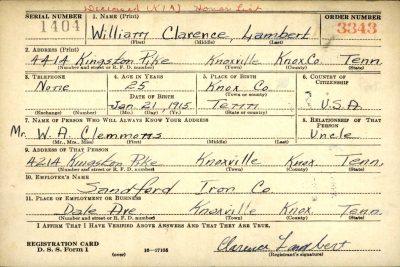 Deceased (KIA) Honor List
SERIAL NUMBER 1. NAME (Print) ORDER NUMBER
1404 William Clarence Lambert 3343
(First) (Middle) (Last)
2. ADDRESS (Print)
4414 Kingston Pike Knoxville Knox Co. Tenn
(Number and street or R. F. D. number) (Town) (County) (State)
3. TELEPHONE 4. AGE IN YEARS 5. PLACE OF BIRTH 6. COUNTRY OF CITIZENSHIP
None 25 Knox Co
DATE OF BIRTH (Town or county)
Jan. 21, 1915. Tenn U.S.A.
(Exchange) (Number) (Mo.) (Day) (Yr.) (State or country)
7. NAME OF PERSON WHO WILL ALWAYS KNOW YOUR ADDRESS 8. RELATIONSHIP OF THAT PERSON
Mr. W. A. Clemmons Uncle
(Mr., Mrs., Miss) (First) (Middle) (Last)
9. ADDRESS OF THAT PERSON
4214 Kingston Pike Knoxville Knox Tenn.
(Number and street or R. F. D. number) (Town) (County) (State)
10. EMPLOYER'S NAME
Sandford Iron Co
11. PLACE OF EMPLOYMENT OR BUSINESS
Dale Ave Knoxville Knox. Tenn
(Number and street or R. F. D. number) (Town) (County) (State)
I AFFIRM THAT I HAVE VERIFIED ABOVE ANSWERS AND THAT THEY ARE TRUE.
REGISTRATION CARD
D. S. S. Form 1 (over) Clarence Lambert
(Registrant's signature)